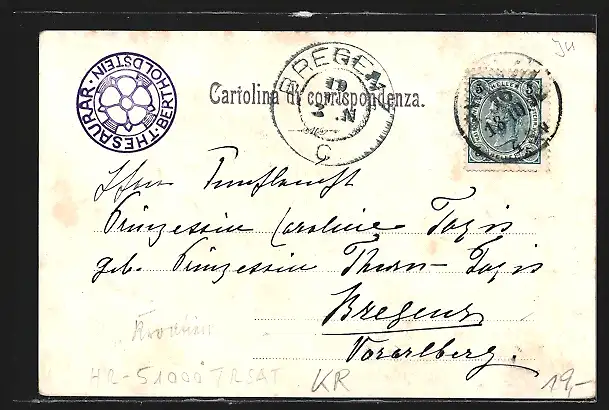 THESAURAR · BERTHOLDSTEIN ·
BREGENZ
Cartolina di corrispondenza.
C
5 HELLER 5
18 10
Prinzessin Caroline Taxis
geb. Prinzessin Thurn-Taxis
Bregenz
Vorarlberg.
Kroatien
HR-51000 TRSAT KR 19,-